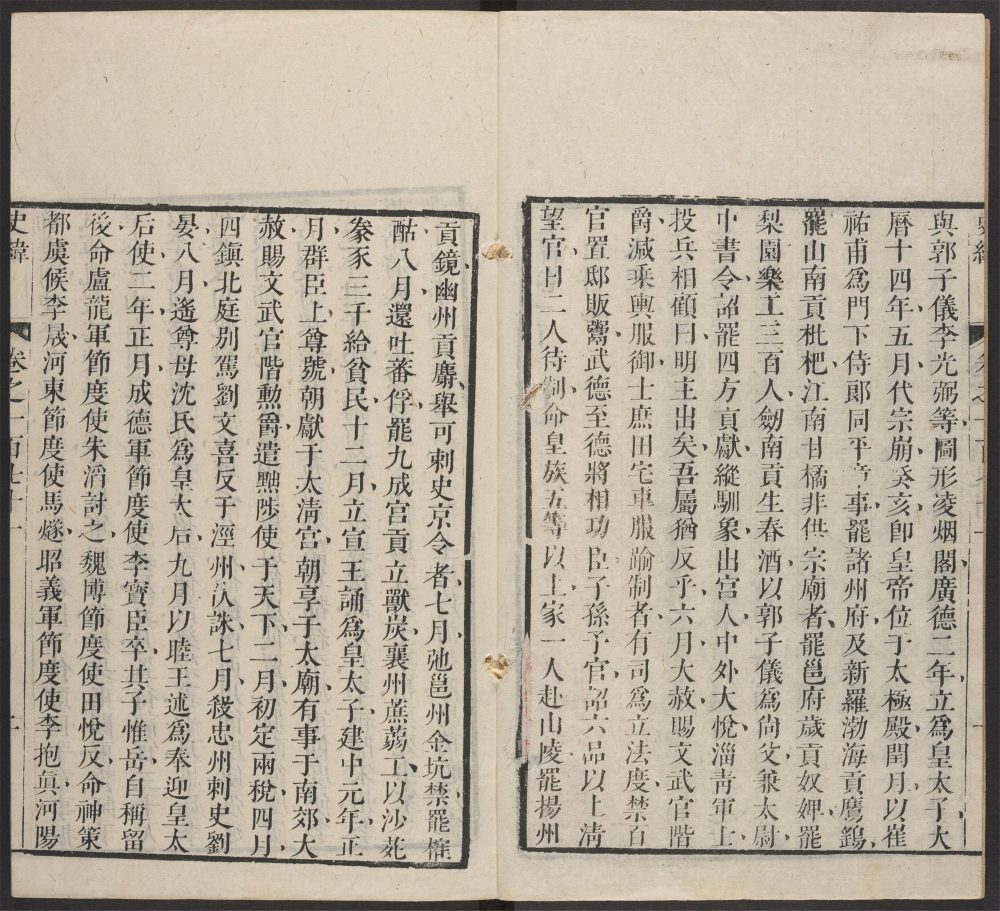 與郭子儀李光弼等圖形凌烟閣廣德二年立爲皇太子大
曆十四年五月代宗崩癸亥卽皇帝位于太極殿閏月以崔
祐甫爲門下侍郎同平章事罷諸州府及新羅渤海貢鷹鷂
罷山南貢枇杷江南甘橘非供宗廟者罷邕府歲貢奴婢罷
梨園樂工三百人劒南貢生春酒以郭子儀爲尚父兼太尉
中書令詔罷四方貢獻縱馴象出宮人中外大悅淄靑軍士
投兵相顧曰明主出矣吾屬猶反乎六月大赦賜文武官階
爵減乘輿服御士庶田宅車服踰制者有司爲立法度禁百
官置邸販鬻武德至德將相功臣子孫予官詔六品以上淸
望官日二人待制命皇族五等以上家一人赴山陵罷揚州
貢鏡幽州貢麝舉可刺史京令者七月弛邕州金坑禁罷榷
酤八月還吐蕃俘罷九成宮貢立獸炭襄州蔗蒻工以沙苑
豢豕三千給貧民十二月立宣王誦爲皇太子建中元年正
月羣臣上尊號朝獻于太淸宮朝享于太廟有事于南郊大
赦賜文武官階勲爵遣黜陟使于天下二月初定兩稅四月
四鎭北庭别駕劉文喜反于涇州伏誅七月殺忠州刺史劉
晏八月遙尊母沈氏爲皇太后九月以睦王述爲奉迎皇太
后使二年正月成德軍節度使李寶臣卒其子惟岳自稱留
後命盧龍軍節度使朱滔討之魏博節度使田悅反命神策
都虞候李晟河東節度使馬燧昭義軍節度使李抱眞河陽
史緯
卷之一百七十一
一